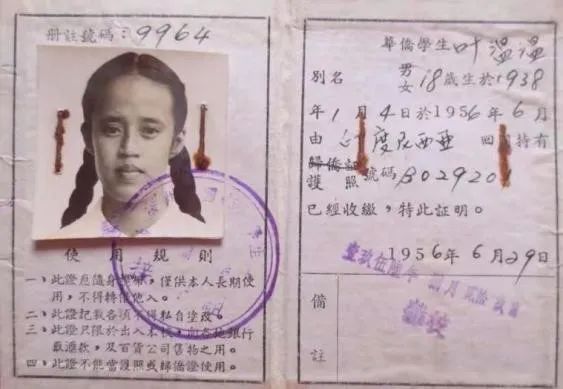 册註號碼：9964
使用規則
一、此證應隨身攜帶，僅供本人長期使
用，不得轉借他人。
二、此證記載各項不得私自塗改。
三、此證只限於出入本校，向各地銀行
取滙款，及百貨公司售物之用。
四、此證不能當護照或歸僑證使用。
華僑學生叶溫溫
別名 男女 18歲生於1938
年1月4日於1956年6月
由印度尼西亞回國持有
歸僑証
護照號碼B029201
已經收繳，特此証明。
1956年6月29日
備
註